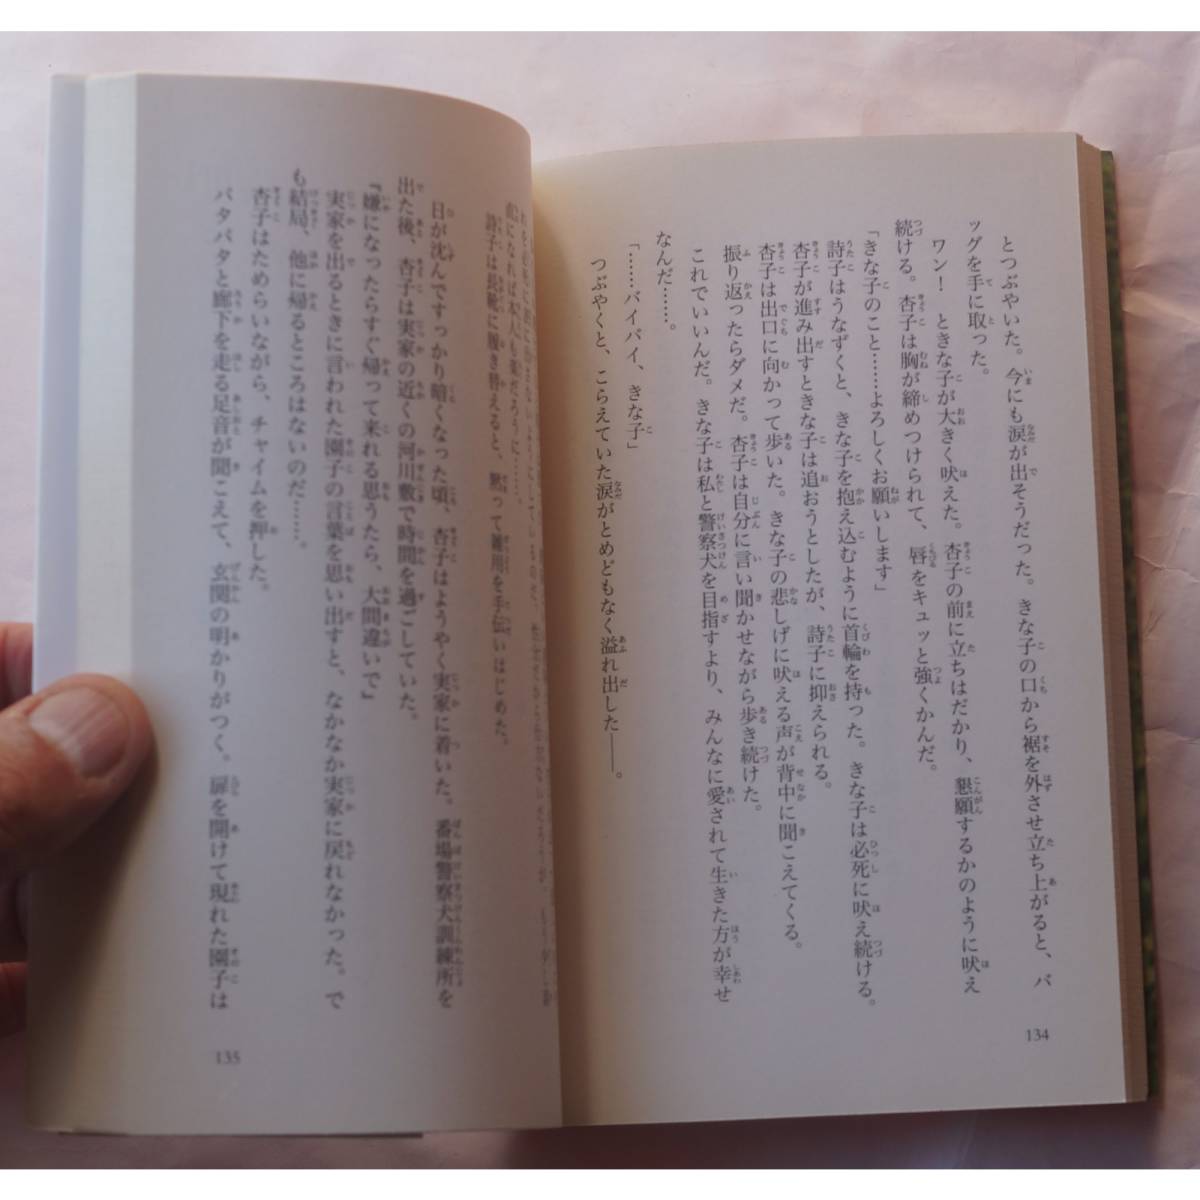 とつぶやいた。今にも涙が出そうだった。きな子の口から裾を外させ立ち上がると、バ
ッグを手に取った。
ワン！　ときな子が大きく吠えた。杏子の前に立ちはだかり、懇願するかのように吠え
続ける。杏子は胸が締めつけられて、唇をキュッと強くかんだ。
「きな子のこと……よろしくお願いします」
詩子はうなずくと、きな子を抱え込むように首輪を持った。きな子は必死に吠え続ける。
杏子が進み出すときな子は追おうとしたが、詩子に抑えられる。
杏子は出口に向かって歩いた。きな子の悲しげに吠える声が背中に聞こえてくる。
振り返ったらダメだ。杏子は自分に言い聞かせながら歩き続けた。
これでいいんだ。きな子は私と警察犬を目指すより、みんなに愛されて生きた方が幸せ
なんだ……。
「……バイバイ、きな子」
つぶやくと、こらえていた涙がとめどもなく溢れ出した――。
134
になれば本人も楽だろうに……。
詩子は長靴に履き替えると、黙って雑用を手伝いはじめた。
日が沈んですっかり暗くなった頃、杏子はようやく実家に着いた。番場警察犬訓練所を
出た後、杏子は実家の近くの河川敷で時間を過ごしていた。
「嫌になったらすぐ帰って来れる思うたら、大間違いで」
実家を出るときに言われた園子の言葉を思い出すと、なかなか実家に戻れなかった。で
も結局、他に帰るところはないのだ……。
杏子はためらいながら、チャイムを押した。
バタバタと廊下を走る足音が聞こえて、玄関の明かりがつく。扉を開けて現れた園子は
135